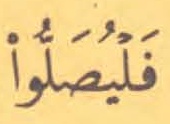 فَلْيُصَلُّواْ